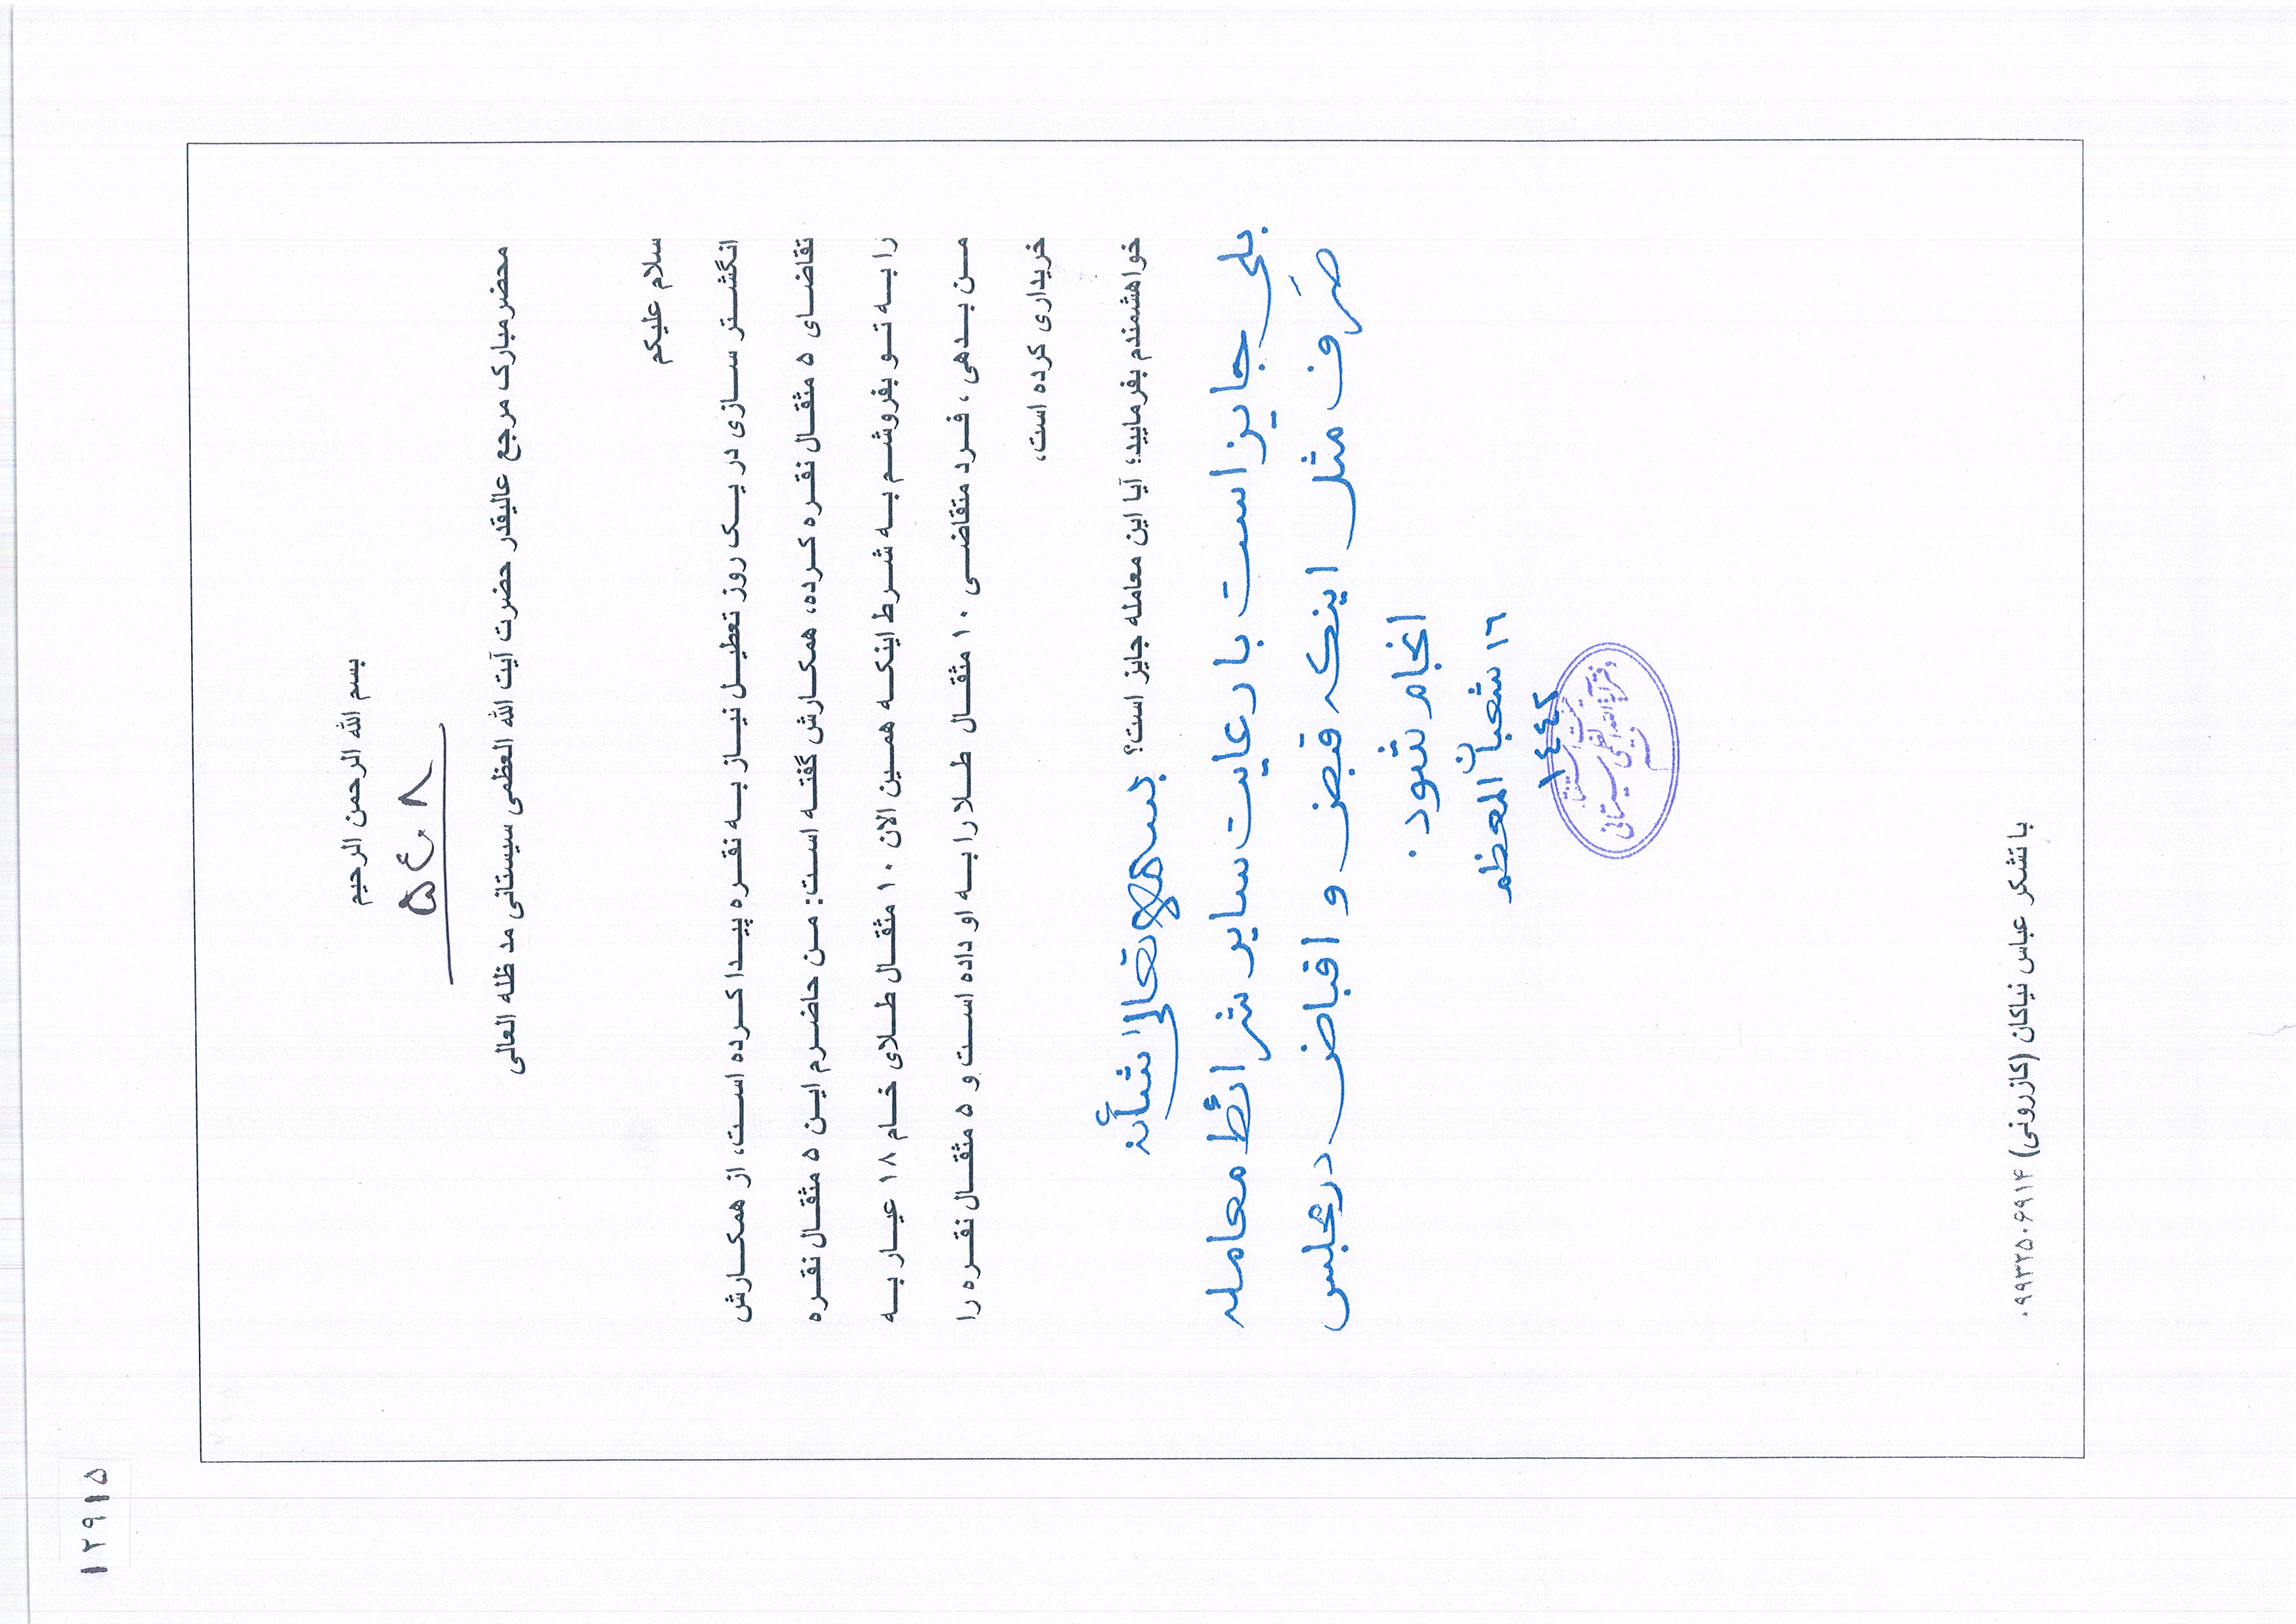 ۱۲۹۱۵
بسم الله الرحمن الرحیم
۵۴۰۸
محضر مبارک مرجع عالیقدر حضرت آیت الله العظمی سیستانی مد ظله العالی
سلام علیکم
انگشتر سازی در یک روز تعطیل نیاز به نقره پیدا کرده است، از همکارش
تقاضای ۵ مثقال نقره کرده، همکارش گفته است: من حاضرم این ۵ مثقال نقره
را به تو بفروشم به شرط اینکه همین الان ۱۰ مثقال طلای خام ۱۸ عیار به
من بدهی، فرد متقاضی ۱۰ مثقال طلا را به او داده است و ۵ مثقال نقره را
خریداری کرده است،
خواهشمندم بفرمایید؛ آیا این معامله جایز است؟
بسمه تعالی شأنه
بلی جایز است با رعایت سایر شرائط معامله
صَرف مثل اینکه قبض و اقباض در مجلس
انجام شود.
۱۶ شعبان المعظم
۱۴۴۲
با تشکر عباس نیاکان (کازرونی) ۰۹۹۳۲۵۰۶۹۱۴